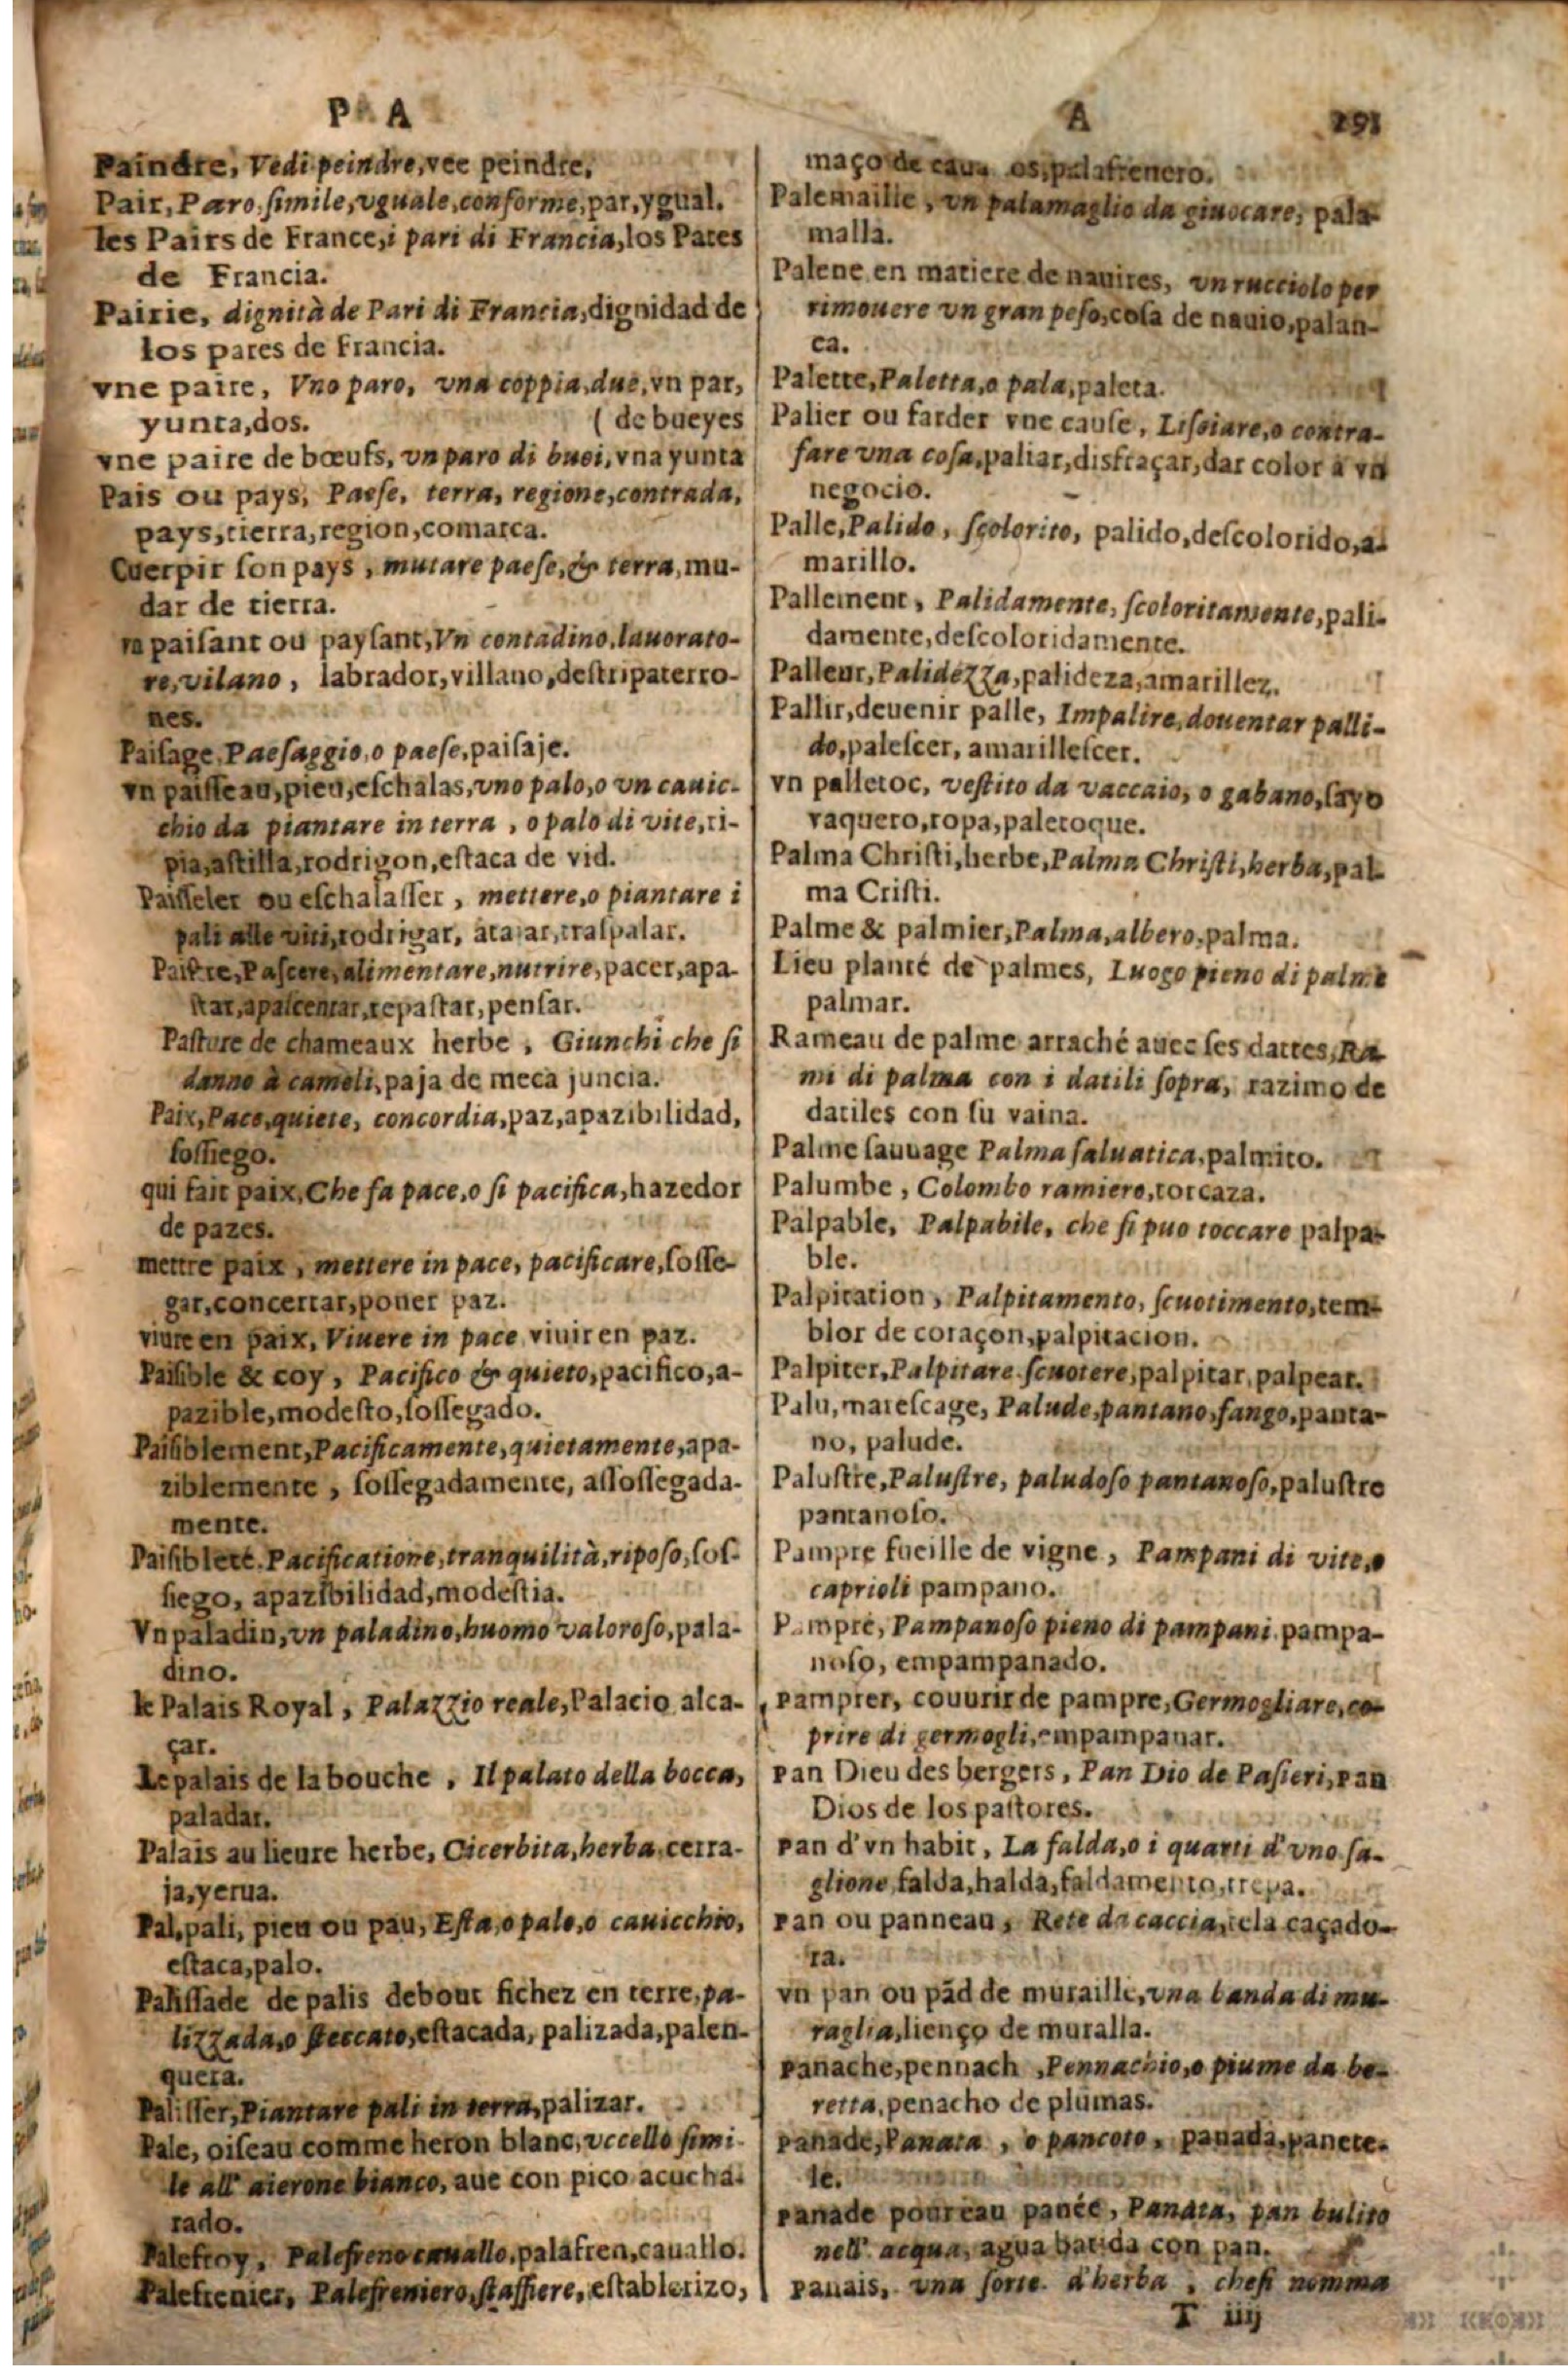 P A
Paindre, Vedi peindre, vee peindre.
Pair, Paro, simile, vguale, conforme, par, ygual.
les Pairs de France, i pari di Francia, los Pares
de Francia.
Pairie, dignità de Pari di Francia, dignidad de
los pares de Francia.
vne paire, Vno paro, vna coppia, due, vn par,
yunta, dos. ( de bueyes
vne paire de bœufs, vn paro di buoi, vna yunta
Pais ou pays, Paese, terra, regione, contrada,
pays, tierra, region, comarca.
Guerpir ſon pays, mutare paeſe, & terra, mu-
dar de tierra.
vn paiſant ou payſant, Vn contadino, lauorato-
re, vilano, labrador, villano, deſtripaterro-
nes.
Paiſage, Paeſaggio, o paeſe, paiſaje.
vn paiſſeau, pieu, eſchalas, vno palo, o vn cauic-
chio da piantare in terra, o palo di vite, ri-
pia, aſtilla, rodrigon, eſtaca de vid.
Paiſſeler ou eſchalaſſer, mettere, o piantare i
pali alle viti, rodrigar, atajar, traſpalar.
Paiſtre, Paſcere, alimentare, nutrire, pacer, apa-
ſtar, apaſcentar, repaſtar, penſar.
Paſture de chameaux herbe, Giunchi che ſi
danno à cameli, paja de meca juncia.
Paix, Pace, quiete, concordia, paz, apazibilidad,
ſoſſiego.
qui fait paix, Che fa pace, o ſi pacifica, hazedor
de pazes.
mettre paix, mettere in pace, pacificare, ſoſſe-
gar, concertar, poner paz.
viure en paix, Viuere in pace, viuir en paz.
Paiſible & coy, Pacifico & quieto, pacifico, a-
pazible, modeſto, ſoſſegado.
Paiſiblement, Pacificamente, quietamente, apa-
ziblemente, ſoſſegadamente, aſſoſſegada-
mente.
Paiſibleté, Pacificatione, tranquilità, ripoſo, ſoſ-
ſiego, apazibilidad, modeſtia.
Vn paladin, vn paladino, huomo valoroſo, pala-
dino.
le Palais Royal, Palazzio reale, Palacio, alca-
çar.
Le palais de la bouche, Il palato della bocca,
paladar.
Palais au lieure herbe, Cicerbita, herba, cerra-
ja, yerua.
Pal, pali, pieu ou pau, Eſta, o palo, o cauicchio,
eſtaca, palo.
Paliſſade de palis debout fichez en terre, pa-
lizzada, o ſteccato, eſtacada, palizada, palen-
quera.
Paliſſer, Piantare pali in terra, palizar.
Pale, oiſeau comme heron blanc, vccello ſimi-
le all' aierone bianco, aue con pico acucha-
rado.
Palefroy, Palefreno cauallo, palafren, cauallo.
Palefrenier, Palefreniero, ſtaffiere, eſtablerizo,
A 291
maço de os, palafrenero.
Palemaille, vn palamaglio da giuocare, pala-
malla.
Palene en matiere de nauires, vn rucciolo per
rimouere vn gran peſo, coſa de nauio, palan-
ca.
Palette, Paletta, o pala, paleta.
Palier ou farder vne cauſe, Liſciare, o contra-
fare vna coſa, paliar, disfraçar, dar color a vn
negocio.
Palle, Palido, ſcolorito, palido, deſcolorido, a-
marillo.
Pallement, Palidamente, ſcoloritamente, pali-
damente, deſcoloridamente.
Palleur, Palidezza, palideza, amarillez.
Pallir, deuenir palle, Impalire, douentar palli-
do, paleſcer, amarilleſcer.
vn palletoc, veſtito da vaccaio, o gabano, ſayo
vaquero, ropa, paletoque.
Palma Chriſti, herbe, Palma Chriſti, herba, pal-
ma Criſti.
Palme & palmier, Palma, albero, palma.
Lieu planté de palmes, Luogo pieno di palme
palmar.
Rameau de palme arraché auec ſes dattes, Ra-
mi di palma con i datili ſopra, razimo de
datiles con ſu vaina.
Palme ſauuage Palma ſaluatica, palmito.
Palumbe, Colombo ramiero, torcaza.
Palpable, Palpabile, che ſi puo toccare palpa-
ble.
Palpitation, Palpitamento, ſcuotimento, tem-
blor de coraçon, palpitacion.
Palpiter, Palpitare ſcuotere, palpitar, palpear.
Palu, mareſcage, Palude, pantano, fango, panta-
no, palude.
Paluſtre, Paluſtre, paludoſo pantanoſo, paluſtre
pantanoſo.
Pampre fueille de vigne, Pampani di vite, o
caprioli pampano.
Pampré, Pampanoſo pieno di pampani, pampa-
noſo, empampanado.
Pamprer, couurir de pampre, Germogliare, co-
prire di germogli, empampanar.
Pan Dieu des bergers, Pan Dio de Paſtori, Pan
Dios de los paſtores.
Pan d'vn habit, La falda, o i quarti d'vno ſa-
glione, falda, halda, faldamento, trepa.
Pan ou panneau, Rete da caccia, tela caçado-
ra.
vn pan ou pãd de muraille, vna banda di mu-
raglia, lienço de muralla.
Panache, pennach, Pennachio, o piume da be-
retta, penacho de plumas.
Panade, Panata, o pancoto, panada, panete-
le.
Panade pour eau panée, Panata, pan bulito
nell' acqua, agua batida con pan.
Panais, vna ſorte d'herba, cheſi nomma
T iiij